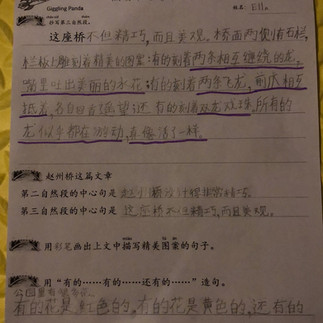 Giggling Panda
姓名: Ella.
抄写第三自然段。
这座桥不但精巧,而且美观。桥面两侧有石栏,
栏板上雕刻着精美的图案:有的刻着两条相互缠绕的龙,
嘴里吐出美丽的水花;有的刻着两条飞龙,前爪相互
抵着,各自回首遥望;还有的刻着双龙戏珠,所有的
龙似乎都在游动,真像活了一样。
赵州桥这篇文章
第二自然段的中心句是 赵州桥设计
第三自然段的中心句是 这座桥不但精巧,而且美观。
用彩笔画出上文中描写精美图案的句子。
用“有的……有的……还有的……”造句。
公园里有很多花。
有的花是红色的,有的花是黄色的,还有的